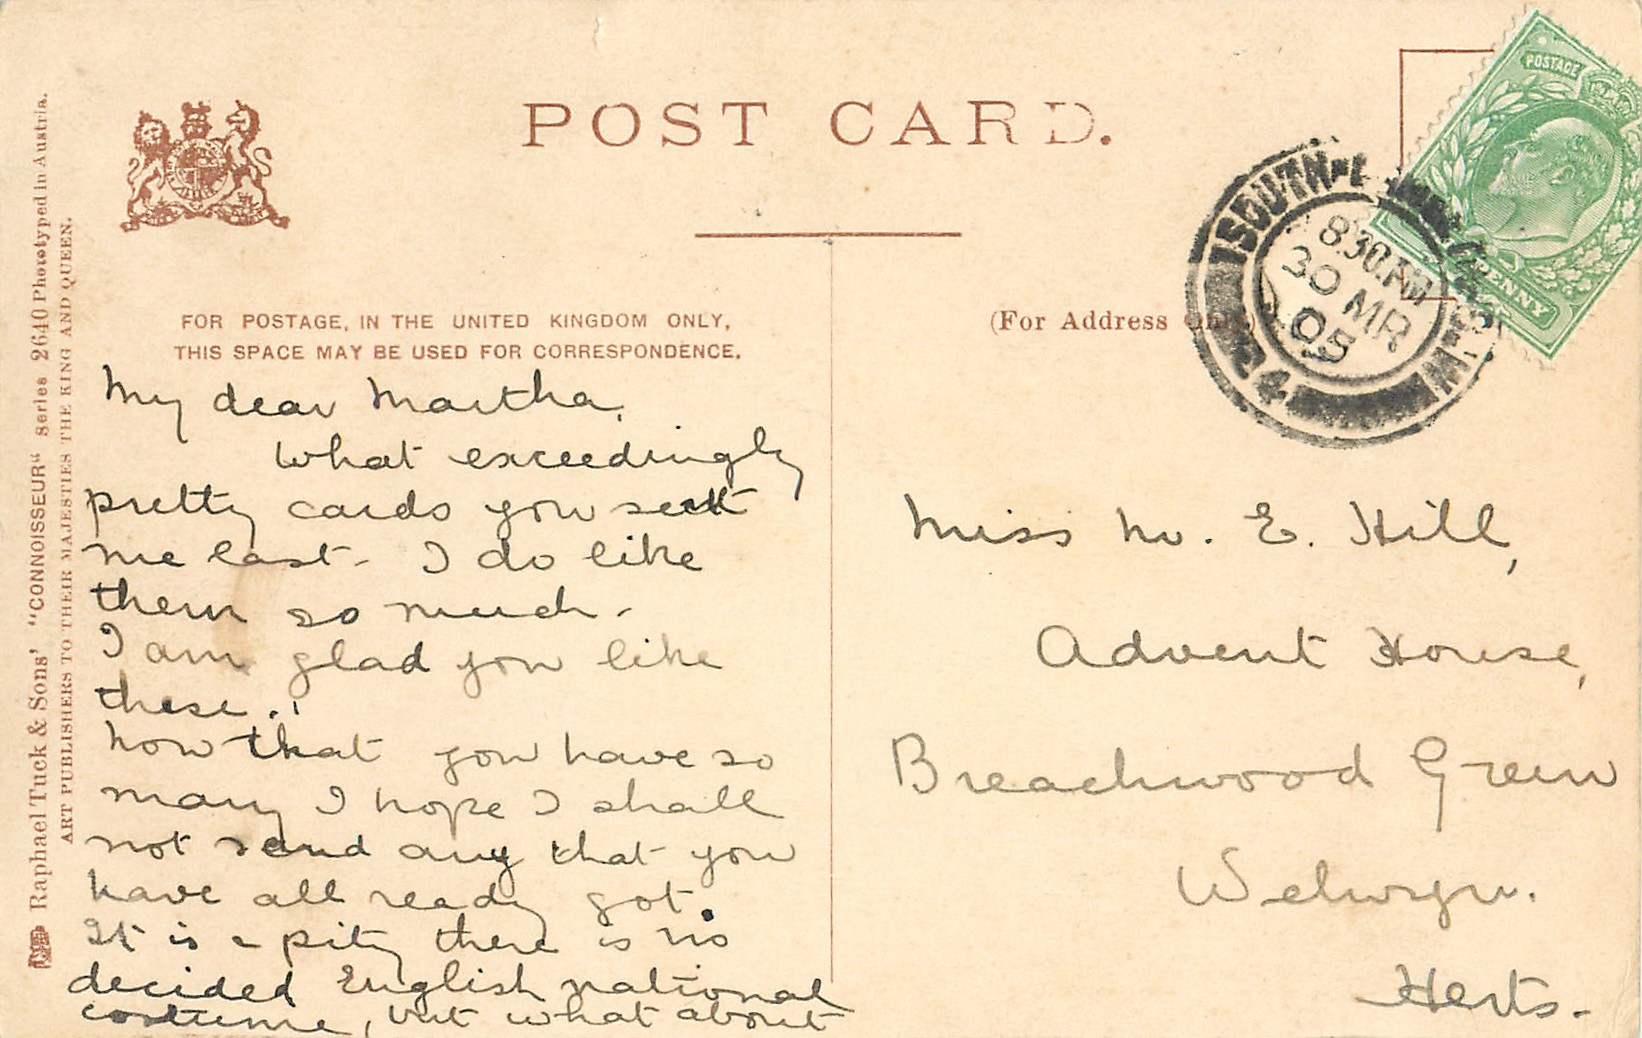 POST CARD.
FOR POSTAGE, IN THE UNITED KINGDOM ONLY,
THIS SPACE MAY BE USED FOR CORRESPONDENCE.
(For Address Only.)
Raphael Tuck & Sons' "CONNOISSEUR" Series 2640 Phototyped in Austria.
ART PUBLISHERS TO THEIR MAJESTIES THE KING AND QUEEN.
My dear Martha,
What exceedingly
pretty cards you sent
me last - I do like
them so much -
I am glad you like
these.!
Now that you have so
many I hope I shall
not send any that you
have all ready got.
It is a pity there is no
decided English national
costume, but what about
Miss M. E. Hill,
Advent House,
Breachwood Green
Welwyn.
Herts.
POSTAGE
PENNY
SOUTH
8.30.PM
30 MR
05
4